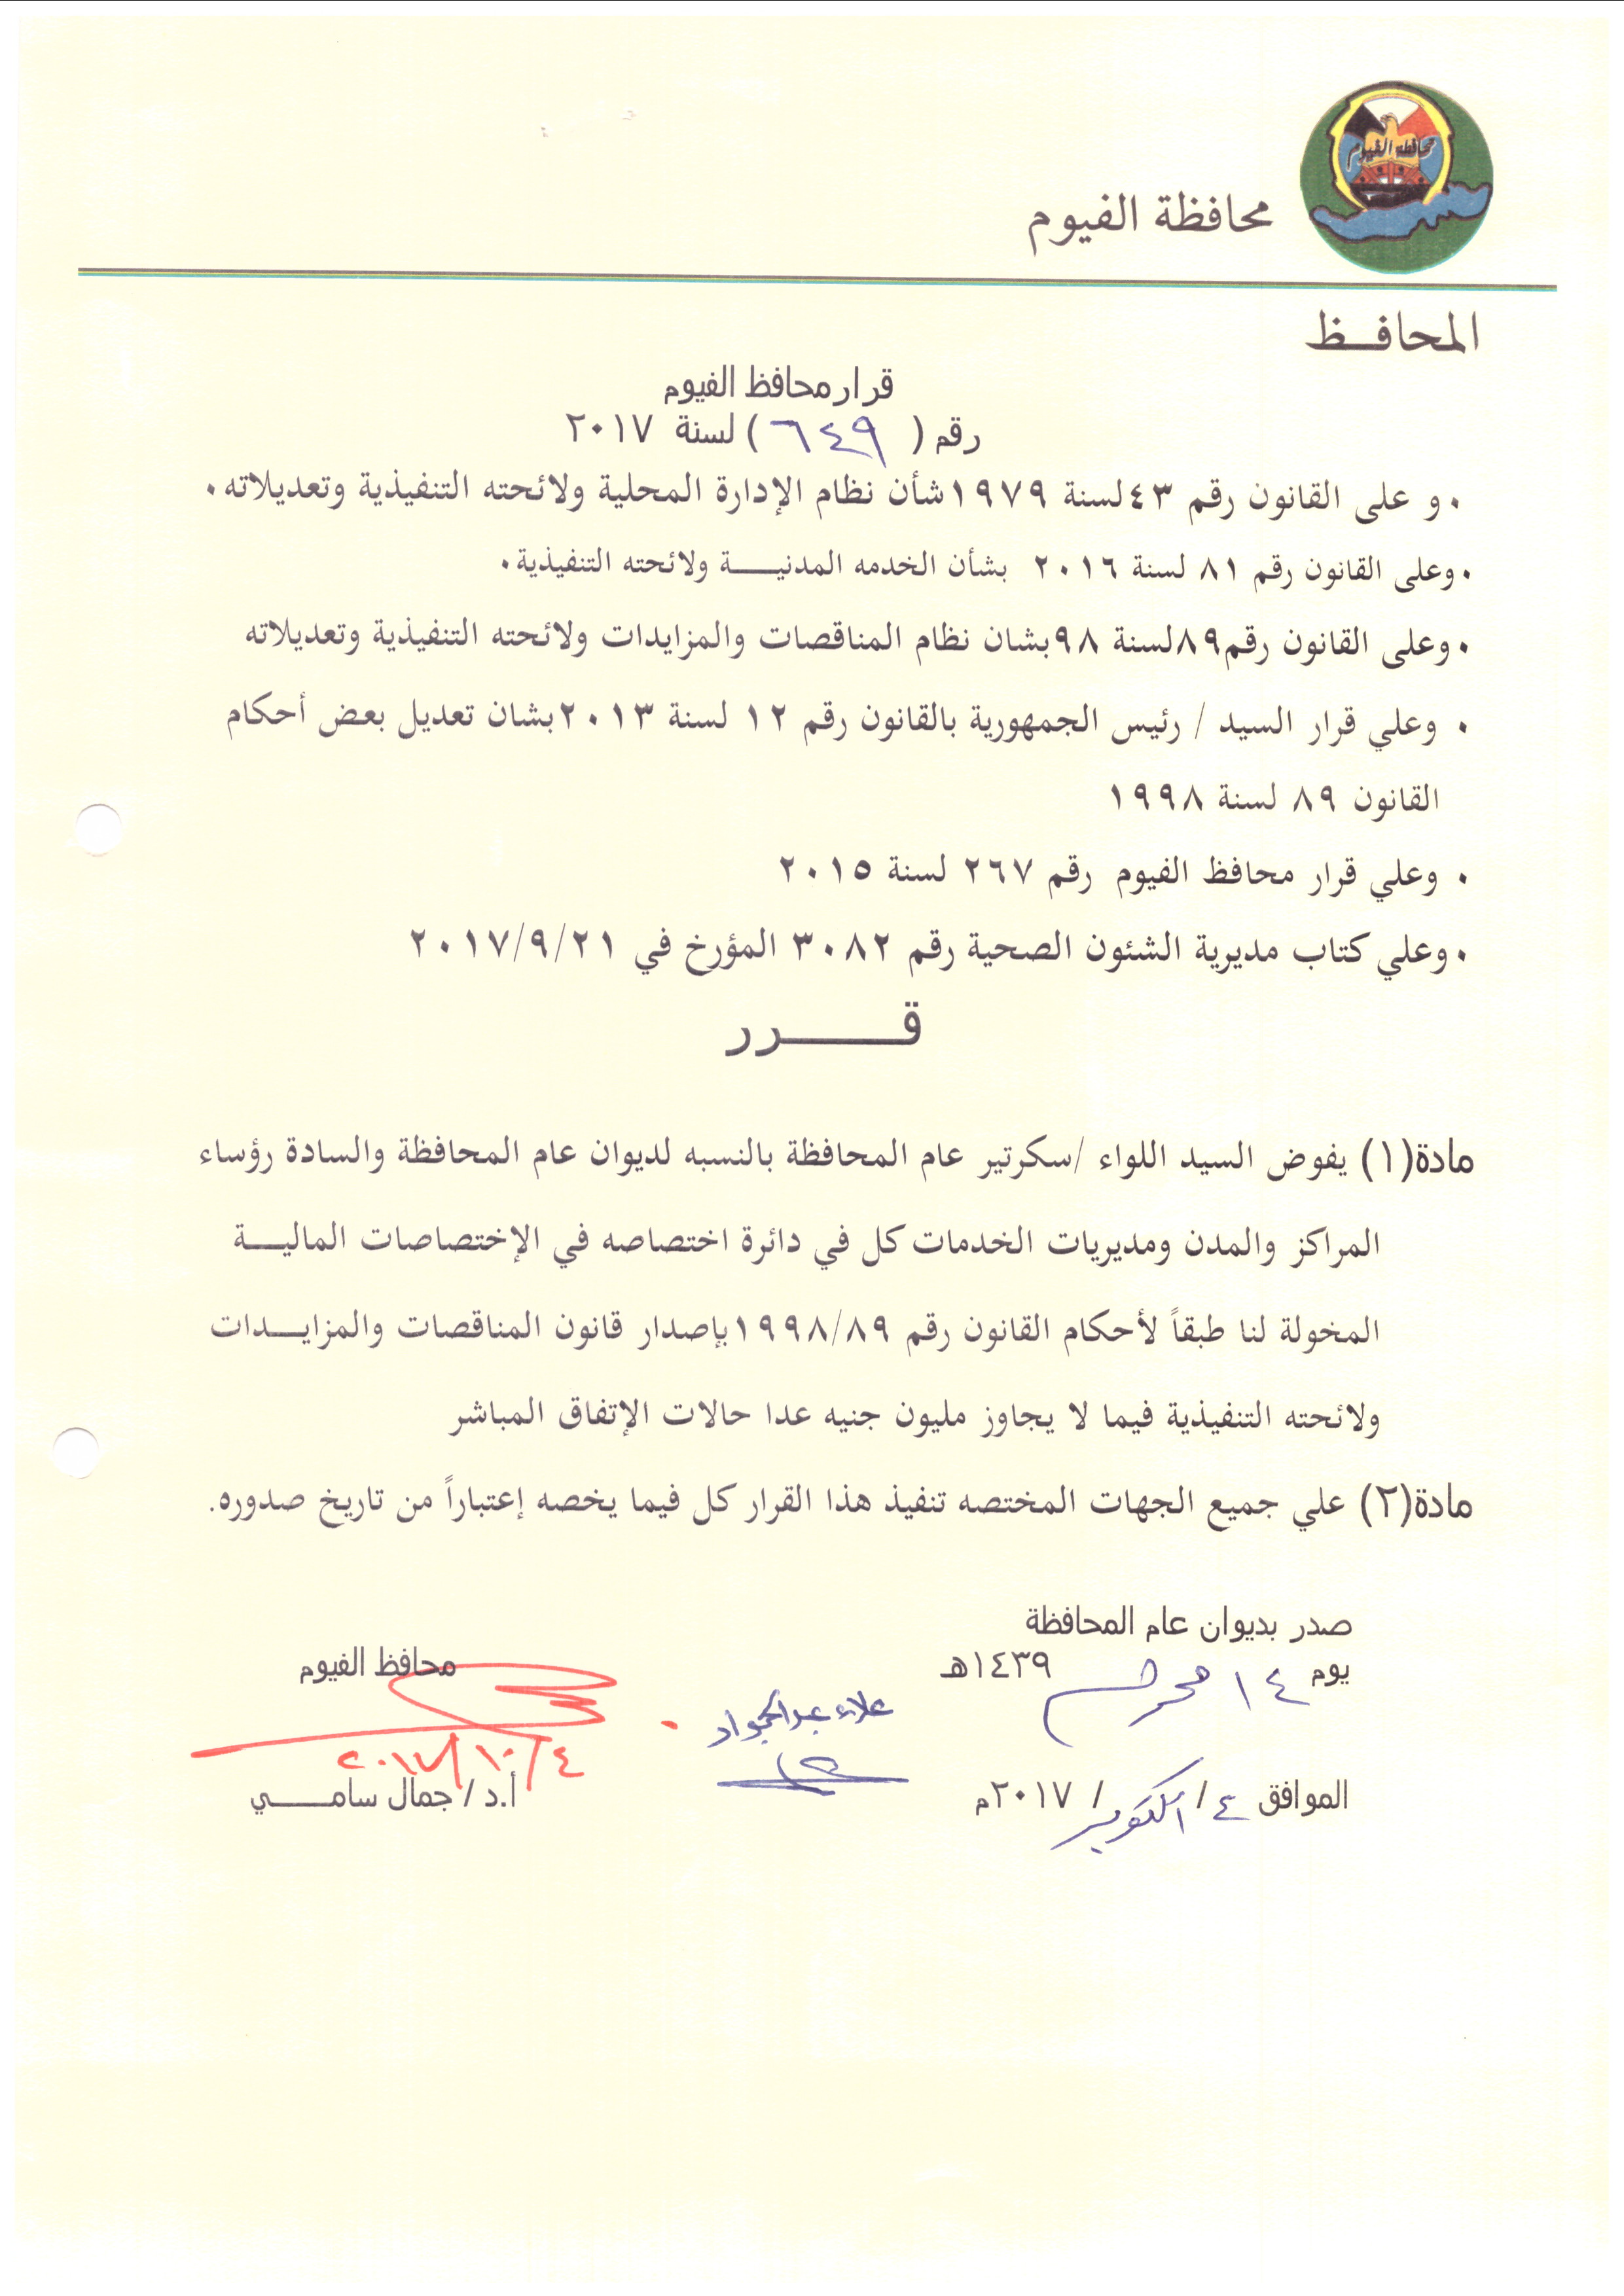 محافظة الفيوم
محافظة الفيوم
المحافــظ
قرار محافظ الفيوم
رقم ( ٦٤٩ ) لسنة ٢٠١٧
٠ و على القانون رقم ٤٣ لسنة ١٩٧٩ شأن نظام الإدارة المحلية ولائحته التنفيذية وتعديلاته ٠
٠ وعلى القانون رقم ٨١ لسنة ٢٠١٦ بشأن الخدمه المدنيـــة ولائحته التنفيذية ٠
٠ وعلى القانون رقم ٨٩ لسنة ٩٨ بشان نظام المناقصات والمزايدات ولائحته التنفيذية وتعديلاته
٠ وعلي قرار السيد / رئيس الجمهورية بالقانون رقم ١٢ لسنة ٢٠١٣ بشان تعديل بعض أحكام
القانون ٨٩ لسنة ١٩٩٨
٠ وعلي قرار محافظ الفيوم رقم ٢٦٧ لسنة ٢٠١٥
٠ وعلي كتاب مديرية الشئون الصحية رقم ٣٠٨٢ المؤرخ في ٢٠١٧/٩/٢١
قــــــرر
مادة(١) يفوض السيد اللواء /سكرتير عام المحافظة بالنسبه لديوان عام المحافظة والسادة رؤساء
المراكز والمدن ومديريات الخدمات كل في دائرة اختصاصه في الإختصاصات الماليـــة
المخولة لنا طبقاً لأحكام القانون رقم ١٩٩٨/٨٩ بإصدار قانون المناقصات والمزايـــدات
ولائحته التنفيذية فيما لا يجاوز مليون جنيه عدا حالات الإتفاق المباشر
مادة(٢) علي جميع الجهات المختصه تنفيذ هذا القرار كل فيما يخصه إعتباراً من تاريخ صدوره.
صدر بديوان عام المحافظة
يوم ١٤ محرم ١٤٣٩هـ
الموافق ٤ / أكتوبر / ٢٠١٧م
علاء عبدالجواد
محافظ الفيوم
٢٠١٧/١٠/٤
أ.د / جمال سامــــي